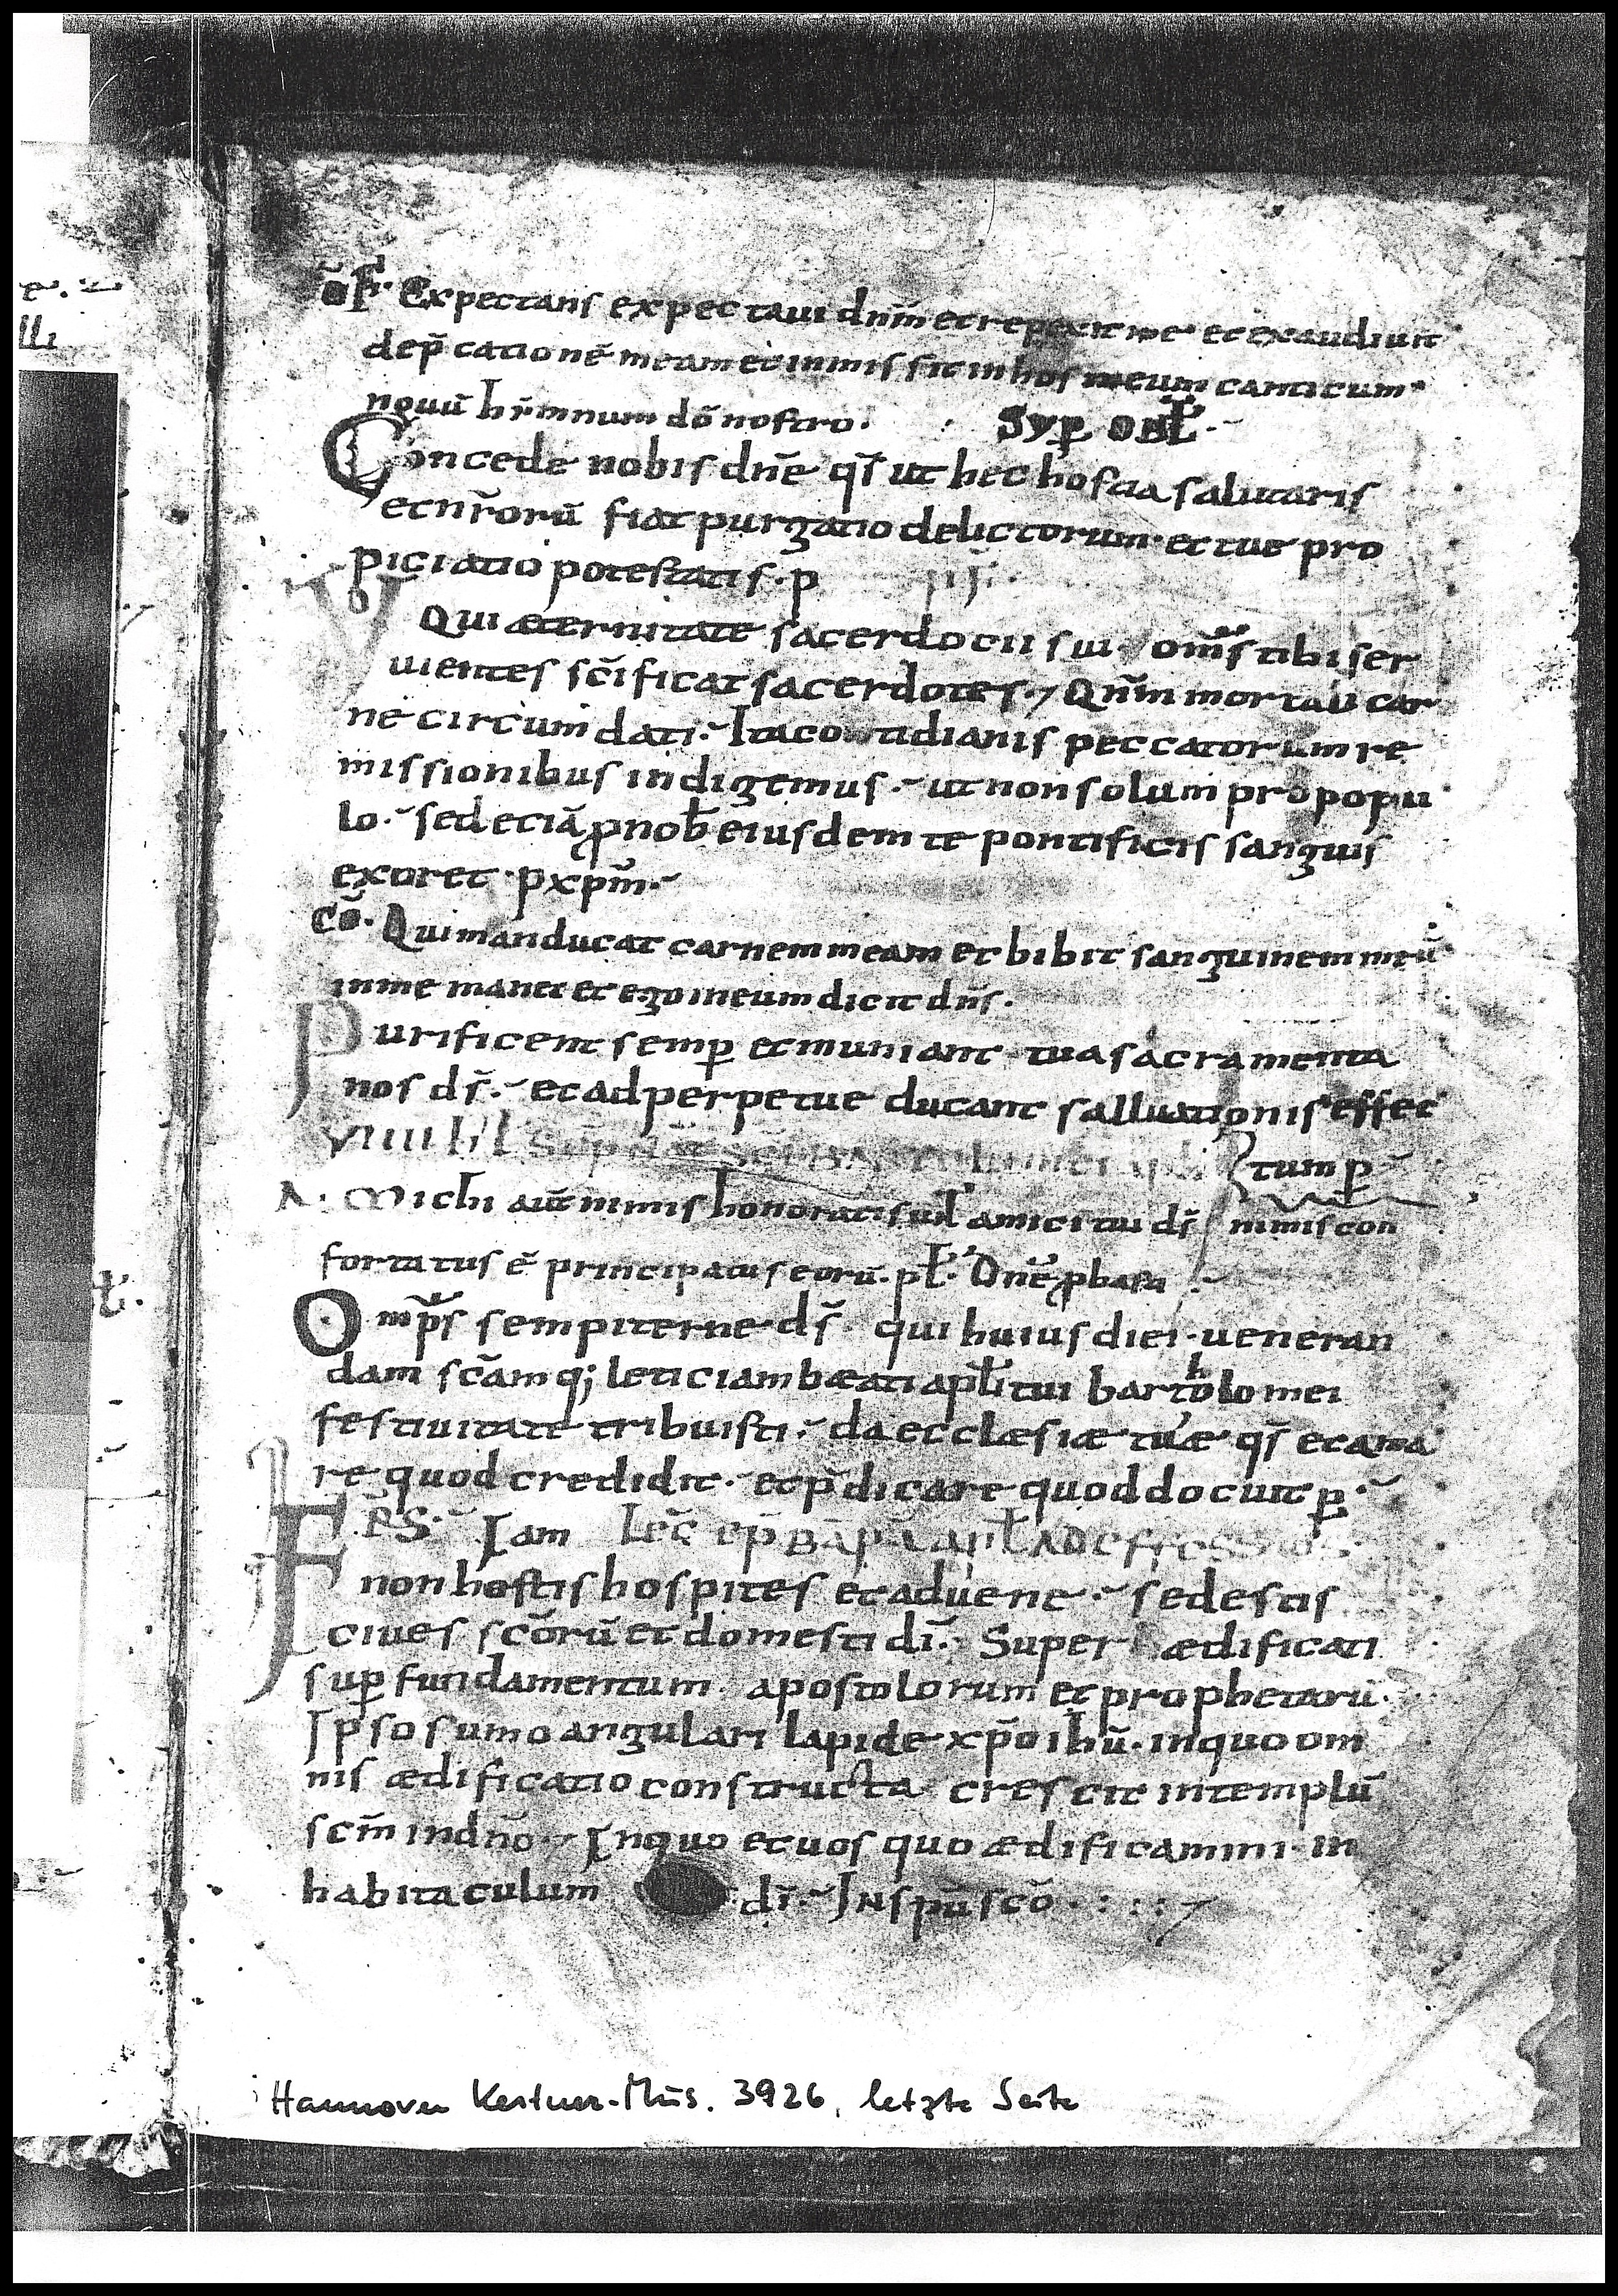 off̄. Expectans expectaui dn̄m et respexit me et exaudiuit
dep̄cationē meam et inmissit in hos meum canticum
nouū hẏmnum dō nostro. Syp̱ obł.
Concede nobis dn̄e qs̄ ut hec hostia salutaris
et nr̄orū fiat purgatio delictorum. et tue pro
piciatio potestatis. p
Qui æternitate sacerdocii sui. om̄s tibi ser
uientes sc̄ificat sacerdotes. Qn̄m mortali car
ne circumdati. Ita cottidianis peccatorum re
missionibus indigemus. ut non solum pro popu
lo. sed eciā ꝓ nob̄ eiusdem te pontificis sanguis
exoret. p xp̄m.
Cō. Qui manducat carnem meam et bibit sanguinem meū
in me manet et ego in eum dicit dn̄s.
Purificent semp̱ et muniant tua sacramenta
nos ds̄. et ad perpetue ducant salluationis effec
VIIII kł Sep̄ Nat̄ Sc̄i Bartolomei apłi tum p̱
A. Michi aut̄ nimis honorati sut̄ amici tui ds̄ nimis con
fortatus ē principatus eorū. pł. Dn̄e ꝓbasti
Omp̄s sempiterne ds̄. qui huius diei. ueneran
dam sc̄amq; leticiam bæati apłi tui bartholomei
festiuitate tribuisti. da ecclæsiæ tuæ qs̄ et ama
re quod credidit. et p̄dicare quod docuit p̱.
FRS. Iam Lec̄ ep̄ B̄ Pauli apłi ad effesios.
non hostis hospites et aduene. sed estis
ciues sc̄orū et domesti dī. Super ædificati
sup̱ fundamentum. apostolorum et prophetarū.
Ipso sumo angulari lapide xp̄o ihū. in quo om
nis ædificatio constructa crescit in templū
scm̄ in dn̄o. In quo et uos quo ædificamini. in
habitaculum dī. In spū sc̄o.
Hannover Kestner-Mus. 3926, letzte Seite